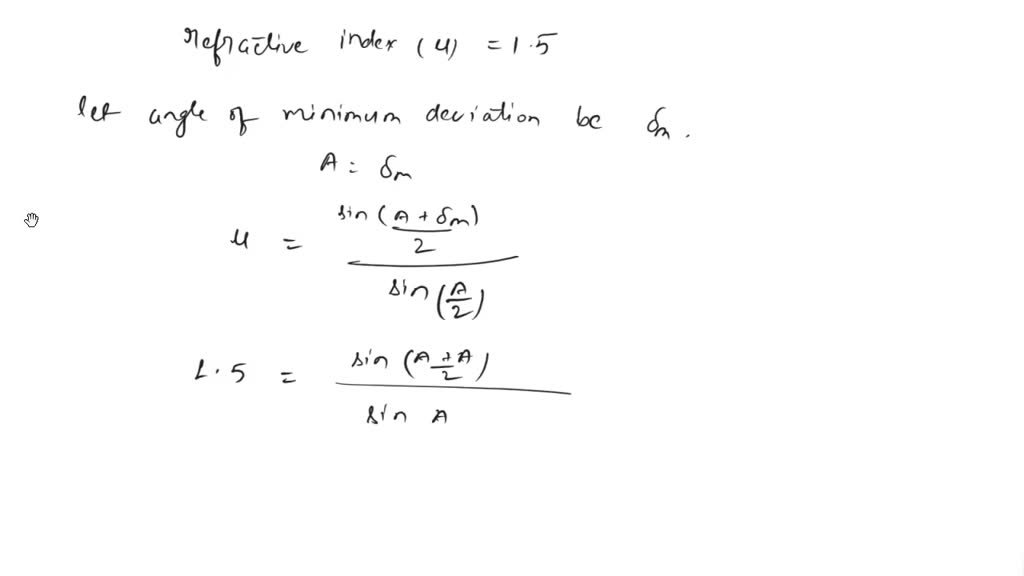 refractive index (μ) = 1.5
let angle of minimum deviation be δm.
A = δm
μ = sin(A + δm / 2) / sin(A/2)
1.5 = sin(A + A / 2) / sin A